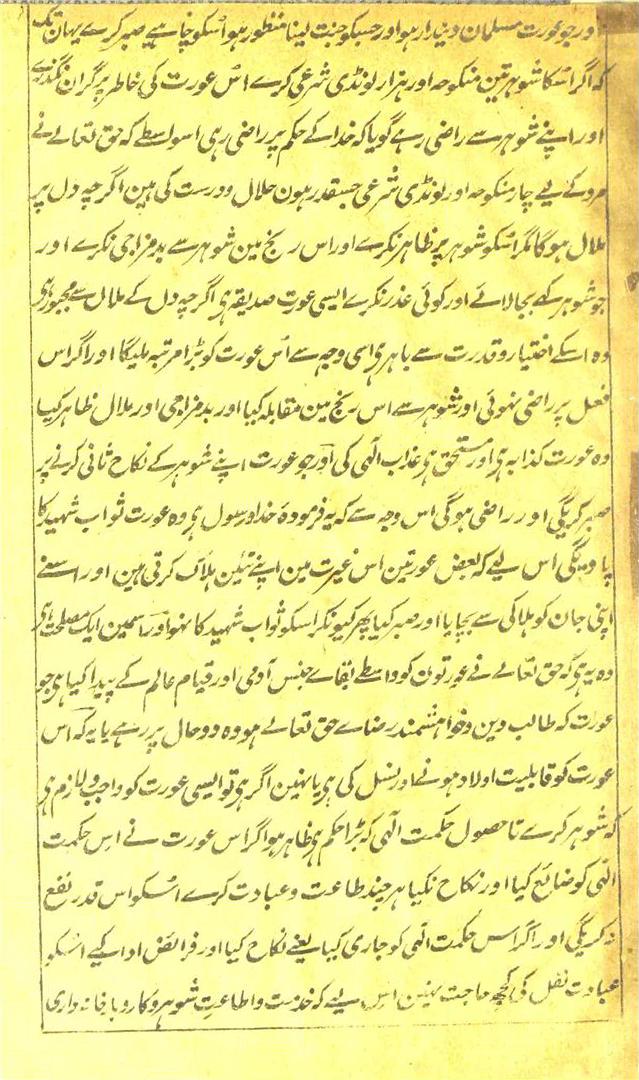 اور جو عورت مسلمان دیندار ہو اور جسکو جنت لینا منظور ہو اُسکو چاہیے صبر کرے یہان تک
کہ اگر اسکا شوہر تین منکوحہ اور ہزار لونڈی شرعی کرے اس عورت کی خاطر پر گران نگذرے
اور اپنے شوہر سے راضی رہے گویا کہ خدا کے حکم پر راضی رہی اسواسطے کہ حق تعالے نے
مرد کے لیے چار منکوحہ اور لونڈی شرعی جسقدر ہون حلال و درست کی ہین اگرچہ دل پر
ملال ہو گا مگر اسکو شوہر پر ظاہر نکرے اور اس رنج مین شوہر سے بدمزاجی نکرے اور
جو شوہر کہے بجا لائے اور کوئی عذر نکرے ایسی عورت صدیقہ ہی اگرچہ دل کے ملال سے مجبور ہی
وہ اسکے اختیار و قدرت سے باہر ہی اسی وجہ سے اُس عورت کو بڑا مرتبہ ملیگا اور اگر اس
فعل پر راضی نہوئی اور شوہر سے اس رنج مین مقابلہ کیا اور بدمزاجی اور ملال ظاہر کیا
وہ عورت کذابہ ہی اور مستحق ہی عذاب الٰہی کی اور جو عورت اپنے شوہر کے نکاح ثانی کرنے پر
صبر کریگی اور راضی ہو گی اس وجہ سے کہ یہ فرمودہ خدا و رسول ہی وہ عورت ثواب شہید کا
پاویگی اس لیے کہ بعض عورتین اس غیرت مین اپنے تئین ہلاک کرتی ہین اور اسنے
اپنی جان کو ہلاکی سے بچایا اور صبر کیا پھر کیونکر اسکو ثواب شہید کا نہو اور اسمین ایک مصلحت ہی
وہ یہ ہی کہ حق تعالے نے عورتون کو واسطے بقاے جنس آدمی اور قیام عالم کے پیدا کیا ہی جو
عورت کہ طالب دین و خواہشمند رضاے حق تعالے ہو وہ دو حال پر رہے یا یہ کہ اُس
عورت کو قابلیت اولاد ہونے اور نسل کی ہی یا نہین اگر ہی تو ایسی عورت کو واجب و لازم ہی
کہ شوہر کرے تا حصول حکمت الٰہی کہ بڑا حکم ہی ظاہر ہو اگر اس عورت نے اس حکمت
الٰہی کو ضایع کیا اور نکاح نکیا ہر چند طاعت و عبادت کرے اسکو اس قدر نفع
نہ کریگی اور اگر اس حکمت الٰہی کو جاری کیا یعنے نکاح کیا اور فرائض ادا کیے اسکو
عبادت نفل کی کچھ حاجت نہین اس لیے کہ خدمت و اطاعت شوہر و کاروبار خانہ داری